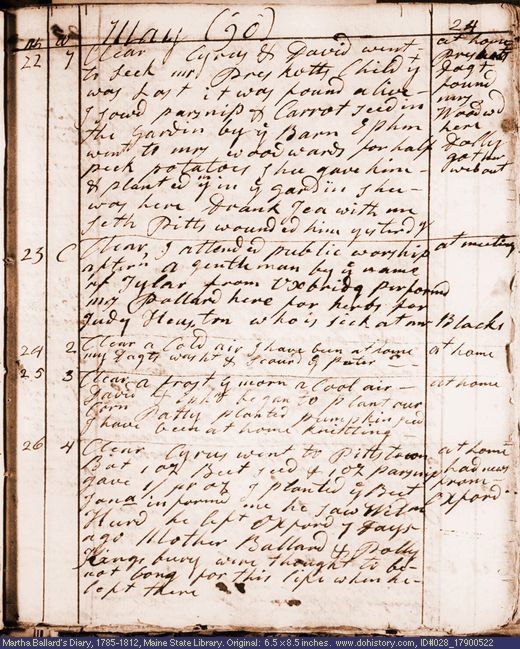 May (90) 24
22 7 Clear Cyrus & David went at home
to seek mr Prescotts Child it
was Lost it was found alive Dagt found
I sowd parsnip & Carrot seed in mrs
the gardin by ye Barn Ephm Woodwd
went to mrs woodwards for half here
peck potatoes shee gave him Dolly
& planted ym in ye gardin shee got her
was here Drank Tea with me web out
Seth Pitts wounded him yesterdy
23 C Clear, I attended public worship at meeting
aftern a gentleman by ye name
of Tylar from Uxbridg performd
mrs Pollard here for herbs for
Judy Heuston who is sick at mr Blacks
24 2 Clear a Cold air I have been at home at home
my Dagts washt & scourd
25 3 Clear a frost ys morn a Cool air at home
David & Ephm began to plant our
Corn Patty planted pumpkin seed
I have been at home knitting
26 4 Clear Cyrus went to Pittstown at home
Bot 1 oz Beet seed & 1 oz parsnip had news
gave I planted ye Beet from
Jona informd me he saw Oxford
Hurd he left Oxford 7 Days
ago Mother Ballard & Polly
Kingsbury were thought to be
not long for this life when he
left there
Martha Ballard's Diary, 1785-1812, Maine State Library. Original: 6.5 x 8.5 inches. www.dohistory.com, ID#028_17900522